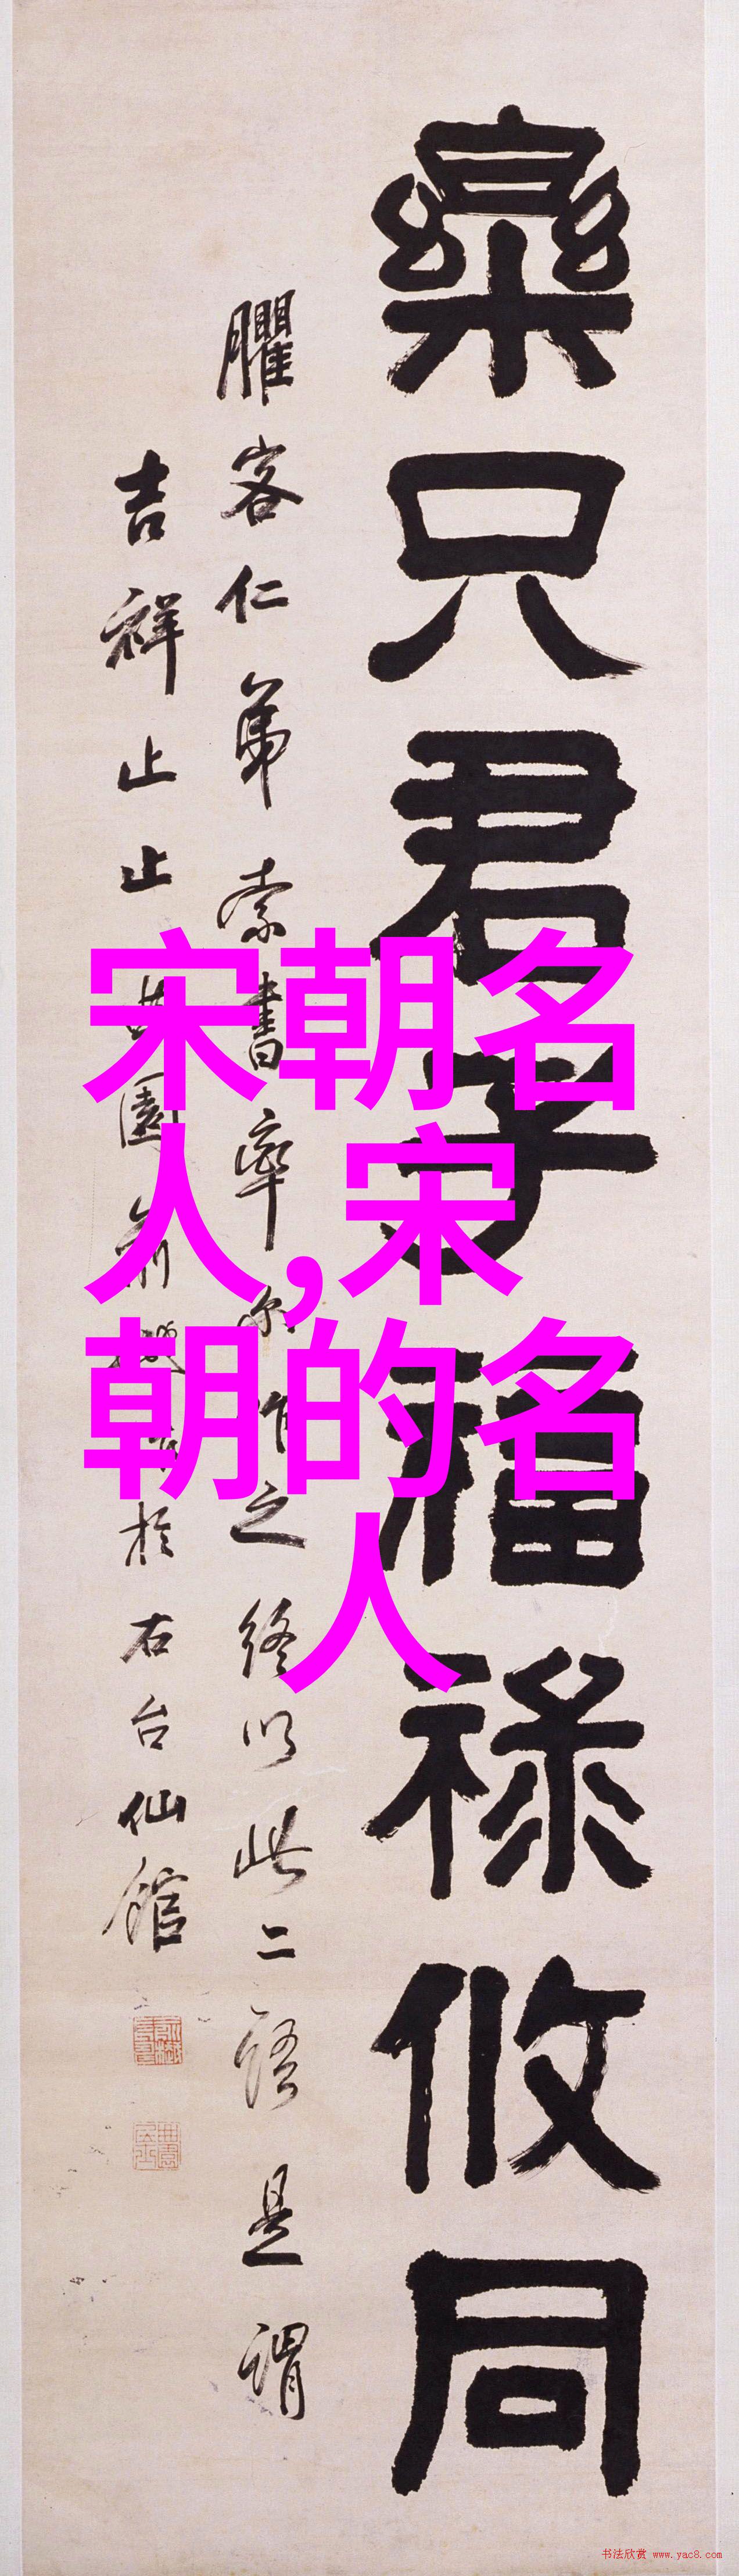 樂只君子福祿攸同
臞客仁弟索書率尔作之終以此二語是謂
吉祥止止 曲園俞樾 於右台仙館
宋朝名
人,宋
朝的名
人
书法欣赏 www.yac8.com